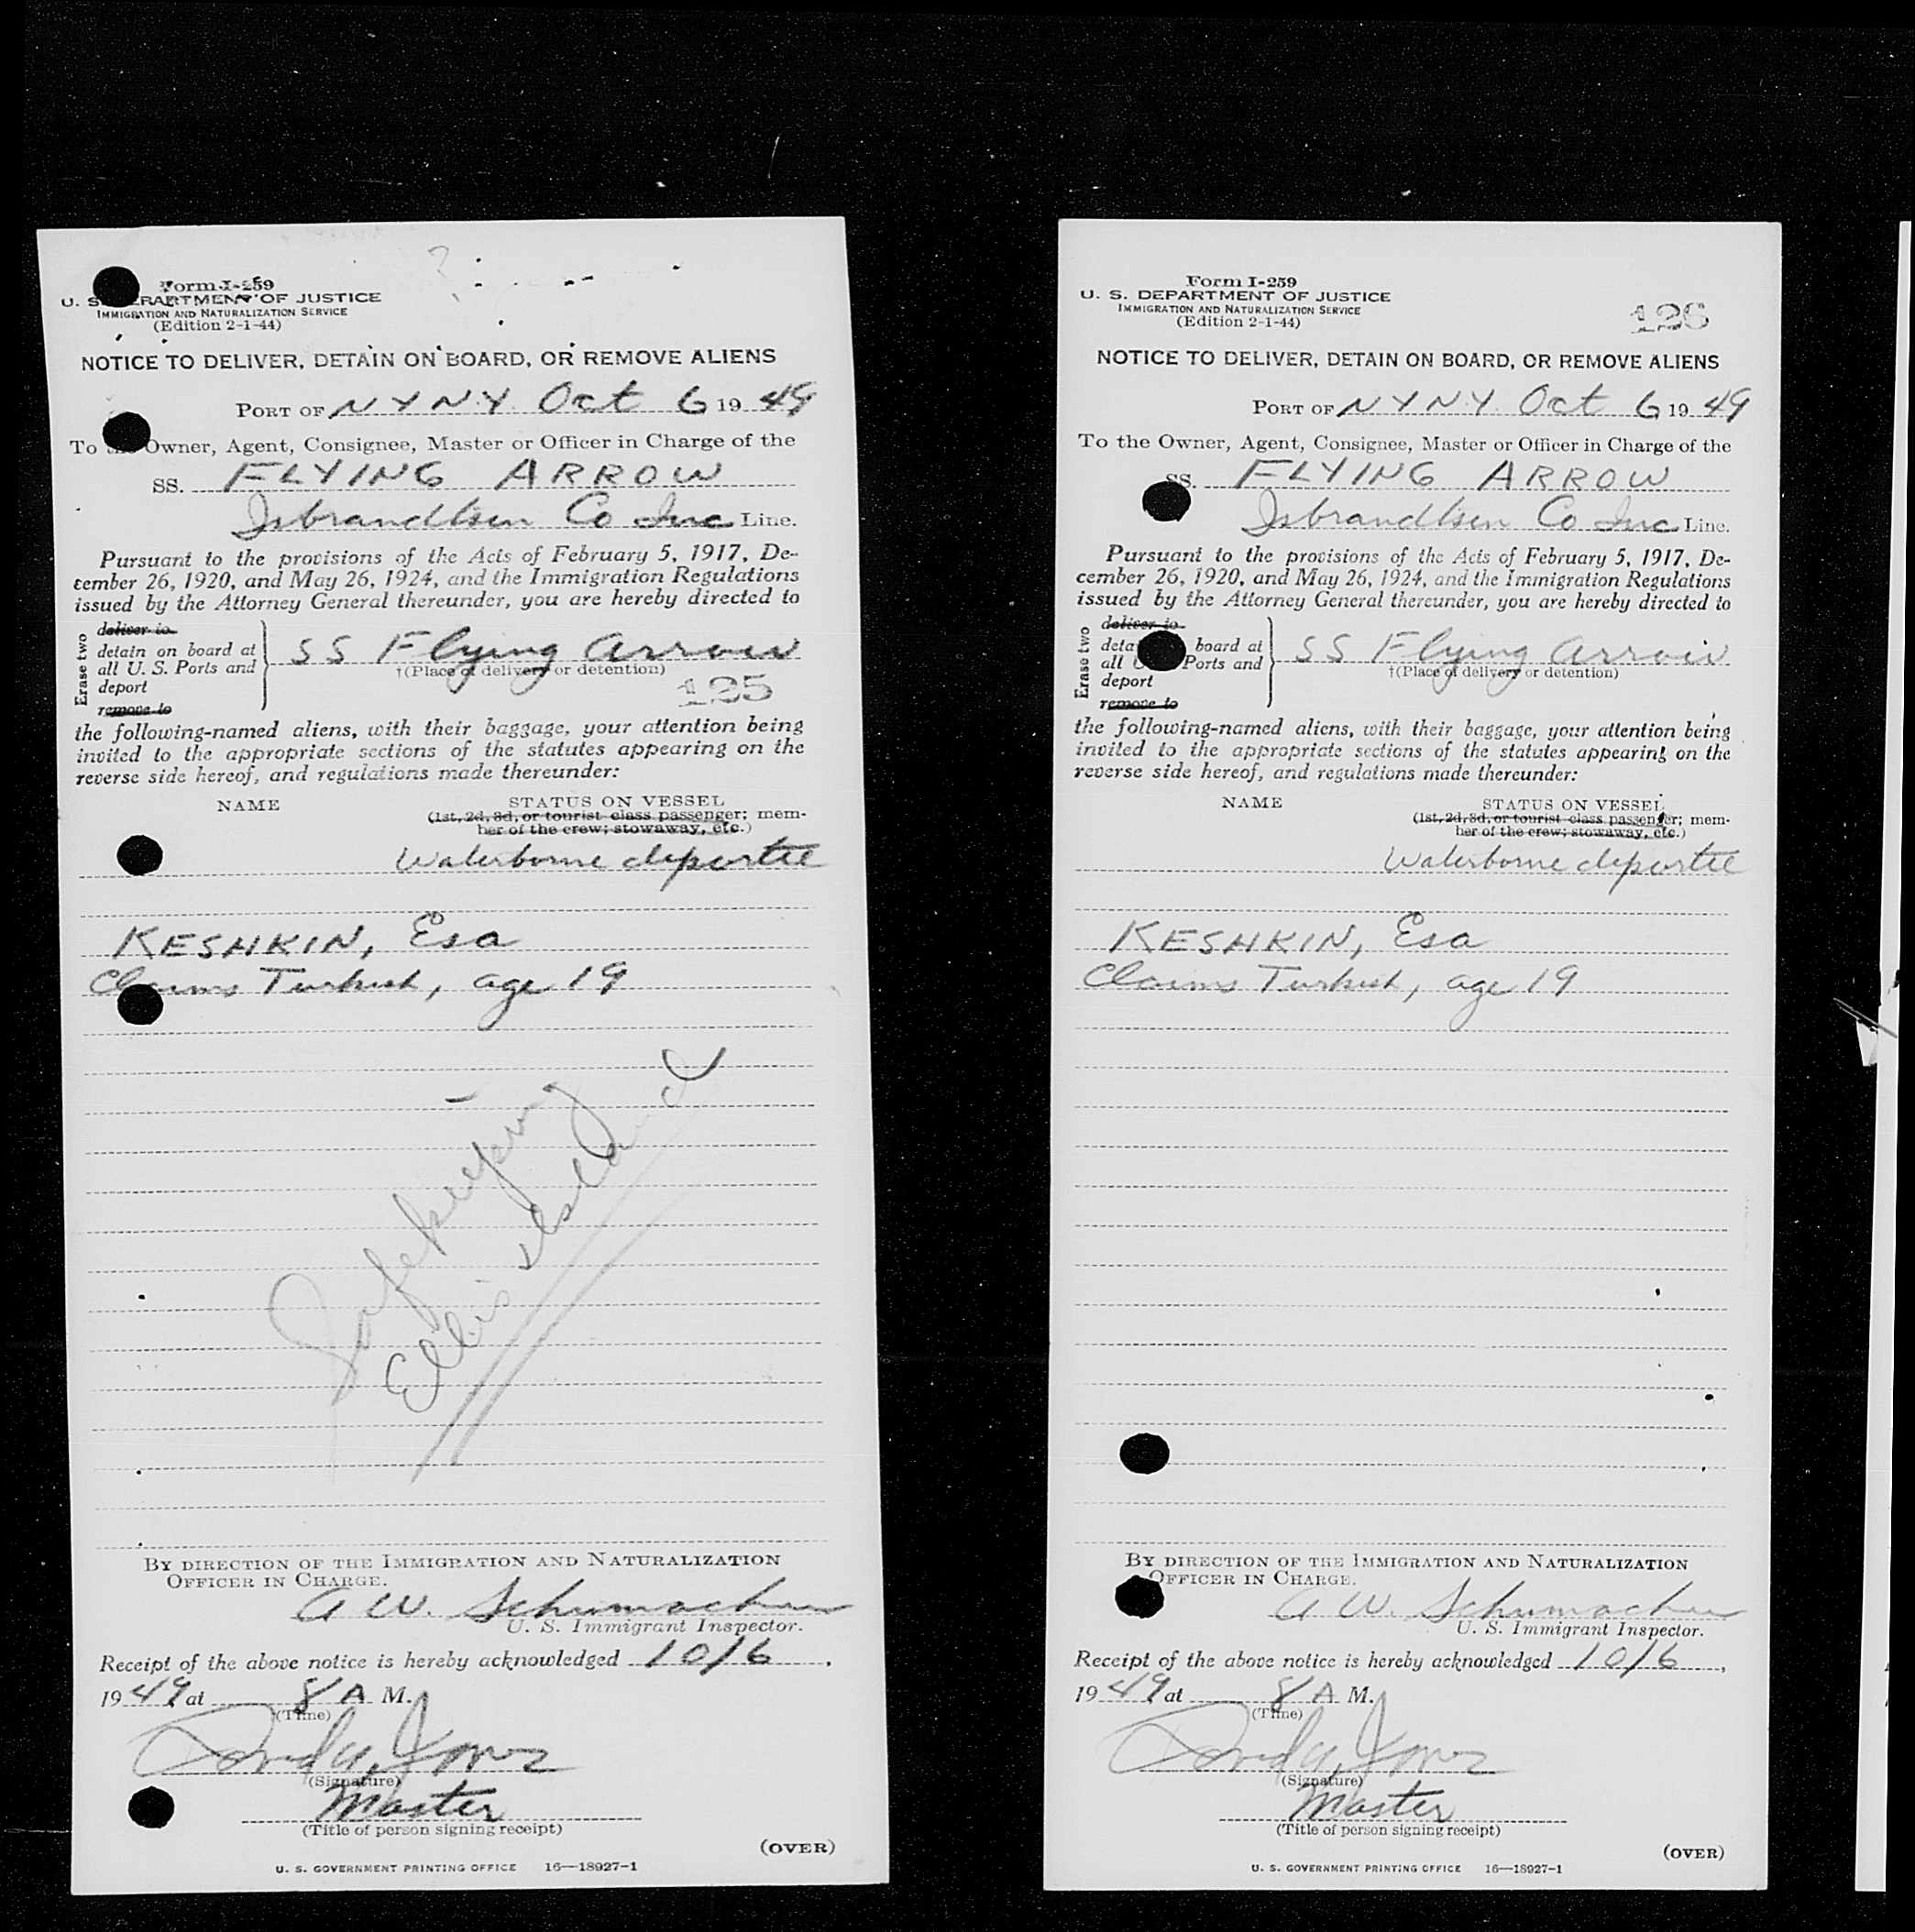 Form I-259
U. S. DEPARTMENT OF JUSTICE
IMMIGRATION AND NATURALIZATION SERVICE
(Edition 2-1-44)
NOTICE TO DELIVER, DETAIN ON BOARD, OR REMOVE ALIENS
PORT OF NYNY Oct 6 1949
To the Owner, Agent, Consignee, Master or Officer in Charge of the
SS. FLYING ARROW
Isbrandtsen Co Inc Line.
Pursuant to the provisions of the Acts of February 5, 1917, De-
cember 26, 1920, and May 26, 1924, and the Immigration Regulations
issued by the Attorney General thereunder, you are hereby directed to
Erase two
deliver to
detain on board at
all U. S. Ports and
deport
remove to
SS Flying Arrow
†(Place of delivery or detention)
125
the following-named aliens, with their baggage, your attention being
invited to the appropriate sections of the statutes appearing on the
reverse side hereof, and regulations made thereunder:
NAME STATUS ON VESSEL
(1st, 2d, 3d, or tourist class passenger; mem-
ber of the crew; stowaway, etc.)
Waterborne deportee
KESHKIN, Esa
Claims Turkish, age 19
Safekeeping
Ellis Island
BY DIRECTION OF THE IMMIGRATION AND NATURALIZATION
OFFICER IN CHARGE.
A W. Schumacher
U. S. Immigrant Inspector.
Receipt of the above notice is hereby acknowledged 10/6,
1949 at 8 A M.
(Time)
Jones
(Signature)
Master
(Title of person signing receipt)
(OVER)
U. S. GOVERNMENT PRINTING OFFICE 16—18927-1
Form I-259
U. S. DEPARTMENT OF JUSTICE
IMMIGRATION AND NATURALIZATION SERVICE
(Edition 2-1-44)
126
NOTICE TO DELIVER, DETAIN ON BOARD, OR REMOVE ALIENS
PORT OF NYNY Oct 6 1949
To the Owner, Agent, Consignee, Master or Officer in Charge of the
SS. FLYING ARROW
Isbrandtsen Co Inc Line.
Pursuant to the provisions of the Acts of February 5, 1917, De-
cember 26, 1920, and May 26, 1924, and the Immigration Regulations
issued by the Attorney General thereunder, you are hereby directed to
Erase two
deliver to
detain on board at
all U. S. Ports and
deport
remove to
SS Flying Arrow
†(Place of delivery or detention)
the following-named aliens, with their baggage, your attention being
invited to the appropriate sections of the statutes appearing on the
reverse side hereof, and regulations made thereunder:
NAME STATUS ON VESSEL
(1st, 2d, 3d, or tourist class passenger; mem-
ber of the crew; stowaway, etc.)
Waterborne deportee
KESHKIN, Esa
Claims Turkish, age 19
BY DIRECTION OF THE IMMIGRATION AND NATURALIZATION
OFFICER IN CHARGE.
A W. Schumacher
U. S. Immigrant Inspector.
Receipt of the above notice is hereby acknowledged 10/6,
1949 at 8 A M.
(Time)
Jones
(Signature)
Master
(Title of person signing receipt)
(OVER)
U. S. GOVERNMENT PRINTING OFFICE 16—18927-1